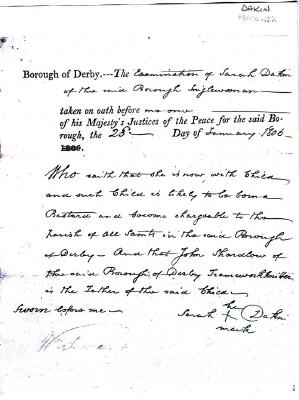 DAKIN
Borough of Derby.---The Examination of Sarah Dakin
of the said Borough Singlewoman
taken on oath before me one
of his Majesty's Justices of the Peace for the said Bo-
rough, the 25 Day of January 1806
1806.
Who saith that she is now with Child
and such Child is likely to be born a
Bastard and become chargeable to the
Parish of All Saints in the said Borough
of Derby - And that John Shardlow of
the said Borough of Derby Frameworkknitter
is the Father of the said Child.
Sworn before me
her
Sarah X Dakin
mark